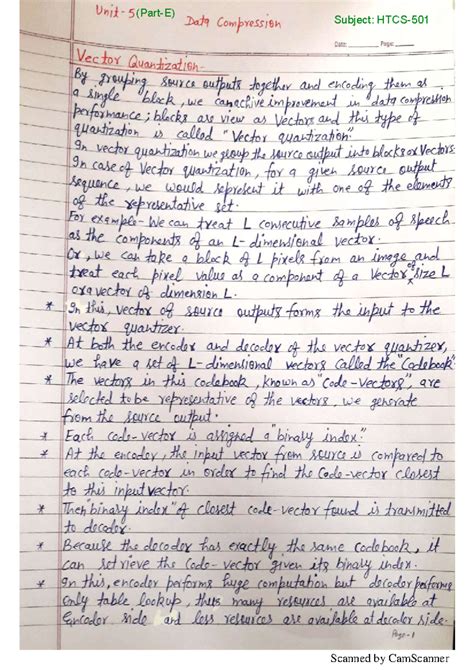 Unit-5(Part-E)
Data Compression
Subject: HTCS-501
Date: Page:
Vector Quantization-
By grouping source outputs together and encoding them as
a single block, we can achive improvement in data compression
performance; blocks are view as Vectors and this type of
quantization is called "Vector quantization"
In vector quantization we group the source output into blocks or Vectors.
In case of Vector quantization, for a given source output
sequence, we would represent it with one of the elements
of the representative set.
For example- We can treat L consecutive samples of speech
as the components of an L-dimensional vector.
Or, we can take a block of L pixels from an image and
treat each pixel value as a component of a vector of size L
or a vector of dimension L.
* In this, vector of source outputs forms the input to the
vector quantizer.
* At both the encoder and decoder of the vector quantizer,
we have a set of L-dimensional vectors called the "Codebook"
* The vectors in this codebook, known as "Code-Vectors", are
selected to be representative of the vectors, we generate
from the source output.
* Each code-vector is assigned a "binary index".
* At the encoder, the input vector from source is compared to
each code-vector in order to find the Code-vector closest
to this input vector.
* Then "binary index" of closest code-vector found is transmitted
to decoder.
* Because the decoder has exactly the same codebook, it
can retrieve the Code-vector given its binary index.
* In this, encoder performs huge computation but decoder performs
only table lookup, thus many resources are available at
Encoder side and less resources are available at decoder side.
Page-1
Scanned by CamScanner